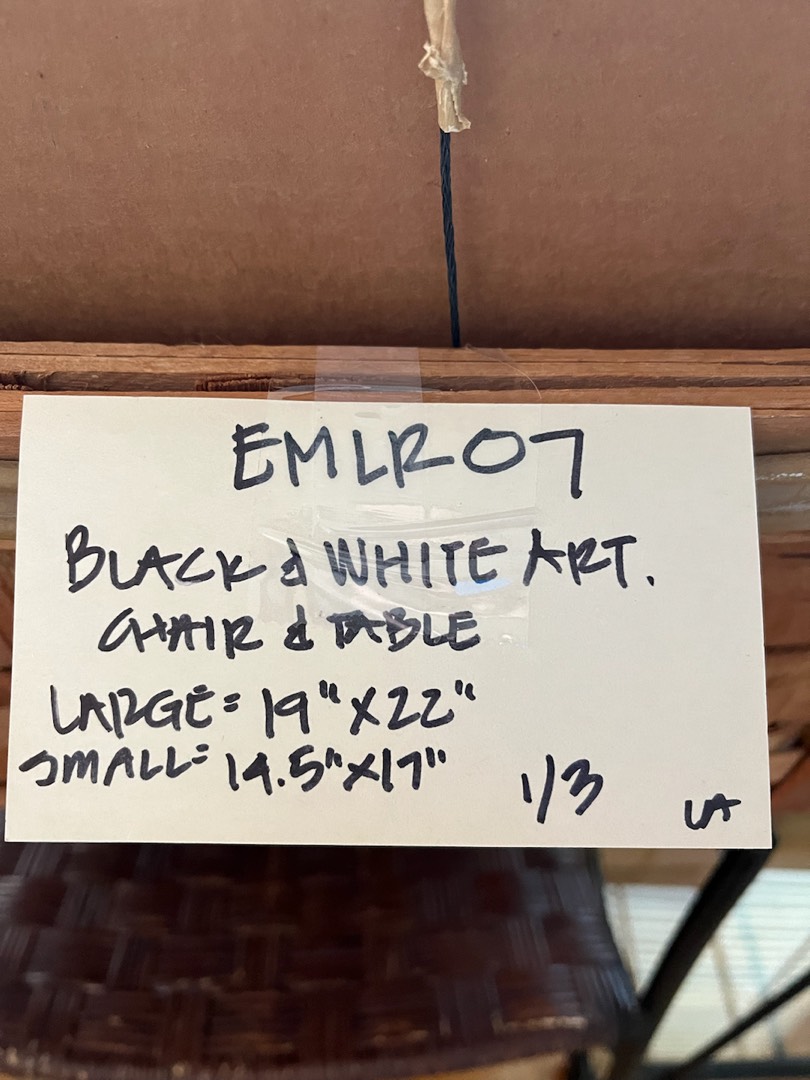 EMLR07
BLACK & WHITE ART.
CHAIR & TABLE
LARGE= 19"X22"
SMALL= 14.5"X17"
1/3
LA